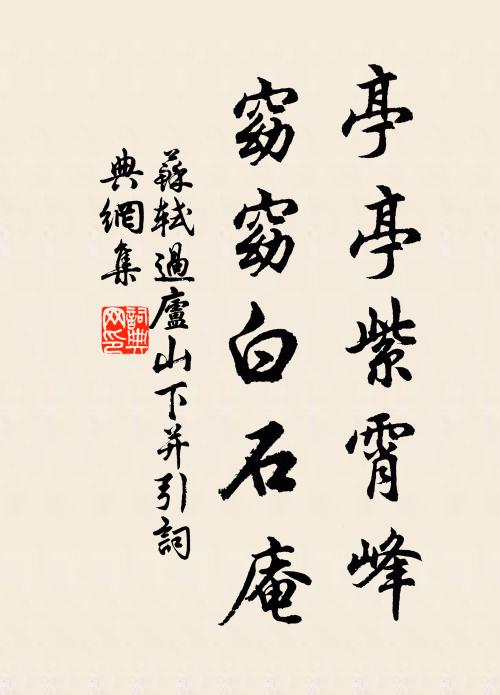 亭亭紫霄峰
窈窈白石庵
蘇軾過廬山下并引詞
典網集
詞典
网印